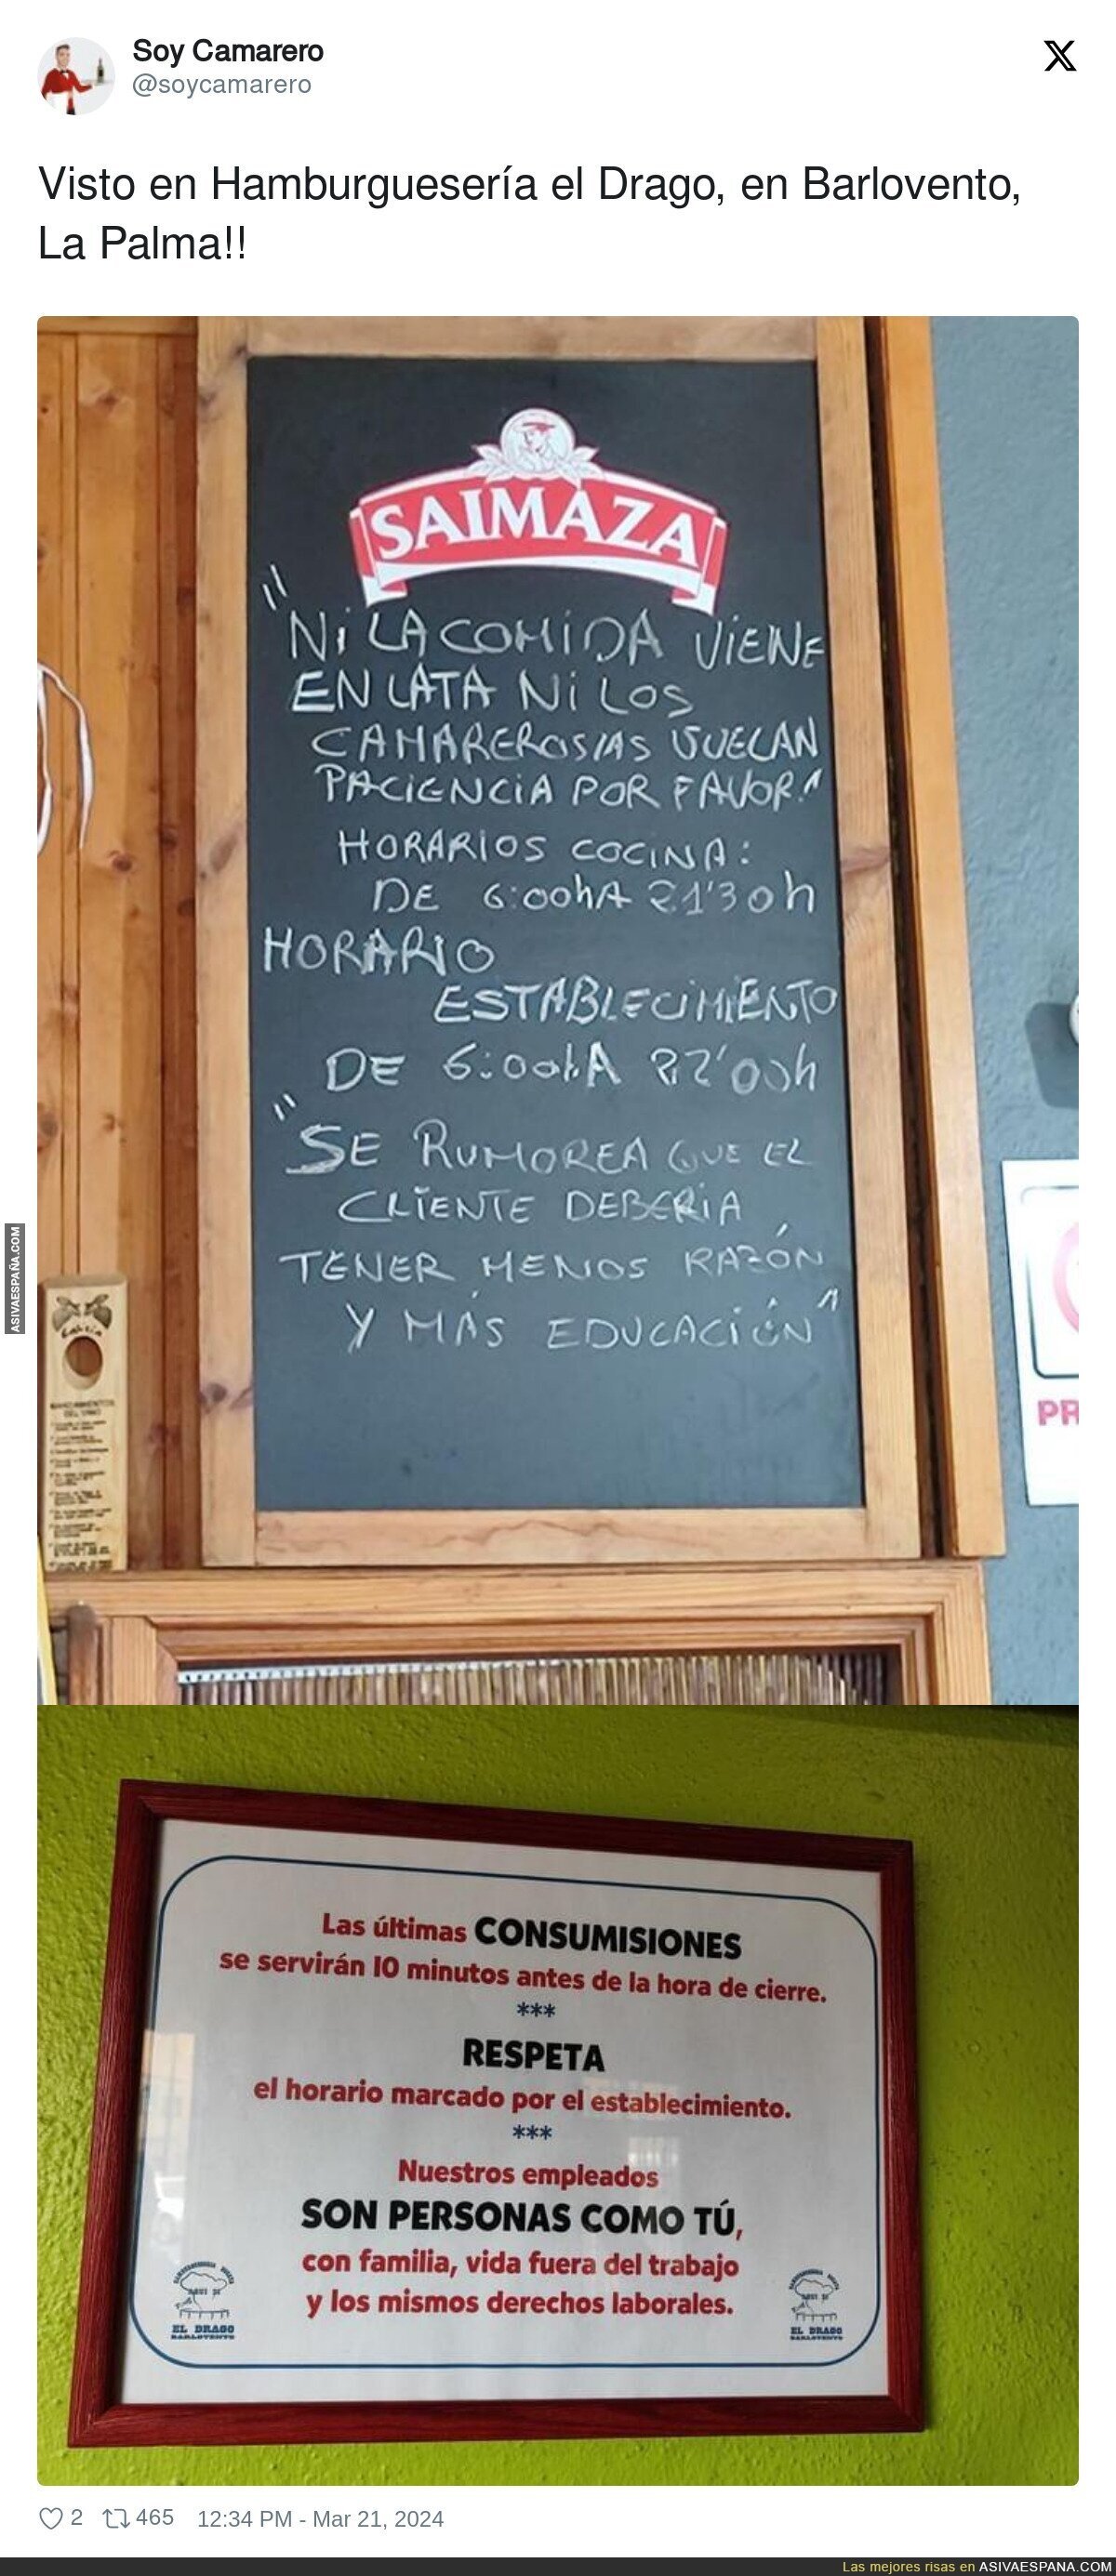 Soy Camarero
@soycamarero
Visto en Hamburguesería el Drago, en Barlovento,
La Palma!!
SAIMAZA
"Ni LA COMiDA ViENE
EN LATA Ni LOS
CAMAREROS/AS VUELAN
PACIENCiA POR FAVOR."
HORARIOS COCINA:
DE 6:00h A 21'30h
HORARIO
ESTABLECiMiENTO
DE 6:00h A 22'00h
"SE RUMOREA QUE EL
CLiENTE DEBERiA
TENER MENOS RAZÓN
Y MÁS EDUCACiÓN"
PR
Las últimas CONSUMISIONES
se servirán 10 minutos antes de la hora de cierre.
***
RESPETA
el horario marcado por el establecimiento.
***
Nuestros empleados
SON PERSONAS COMO TÚ,
con familia, vida fuera del trabajo
y los mismos derechos laborales.
EL DRAGO
BARLOVENTO
EL DRAGO
BARLOVENTO
2 465 12:34 PM - Mar 21, 2024
ASIVAESPAÑA.COM
Las mejores risas en ASIVAESPANA.COM